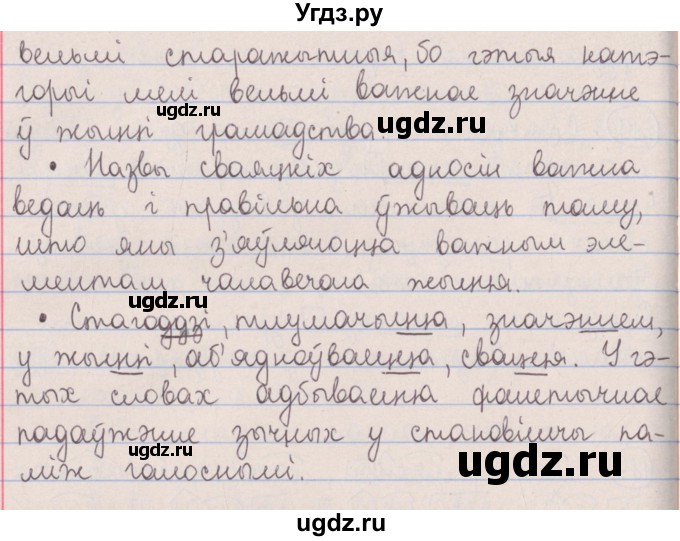 Угдз.ру
вельмі старажытныя, бо гэтыя катэ-
горыі мелі вельмі важнае значэнне
ugdz.ru ugdz.ru
ў жыцці грамадства.
• Назвы сваяцкіх адносін важна
ведаць і правільна ўжываць таму,
што яны з'яўляюцца важным эле-
ментам чалавечага жыцця.
ugdz.ru ugdz.ru
• Стагоддзі, тлумачыцца, значэннем,
у жыцці, аб'ядноўваецца, сваццея. У гэ-
тых словах адбываецца фанетычнае
падаўжэнне зычных у становішчы па-
між галоснымі.
ugdz.ru ugdz.ru
ugdz.ru